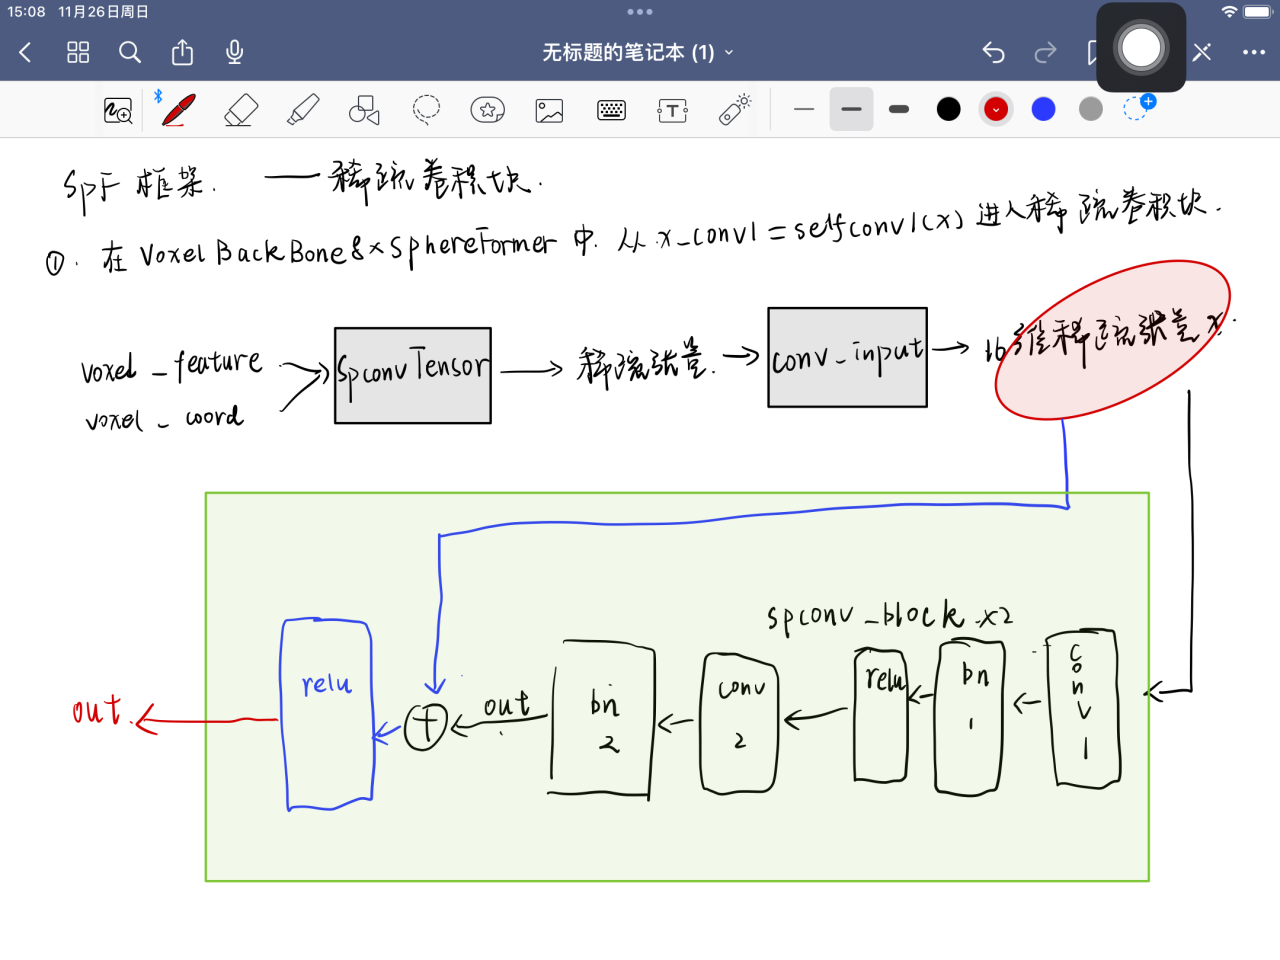 15:08 11月26日周日
无标题的笔记本 (1)
SpF 框架. —— 稀疏卷积块.
①. 在 VoxelBackBone8xSphereFormer 中. 从 x_conv1 = selfconv1(x) 进入稀疏卷积块.
voxel_feature
voxel_coord
SpconvTensor
稀疏张量.
conv_input
16维稀疏张量 x.
spconv_block x2
conv1
bn1
relu
conv2
bn2
out
+
relu
out.